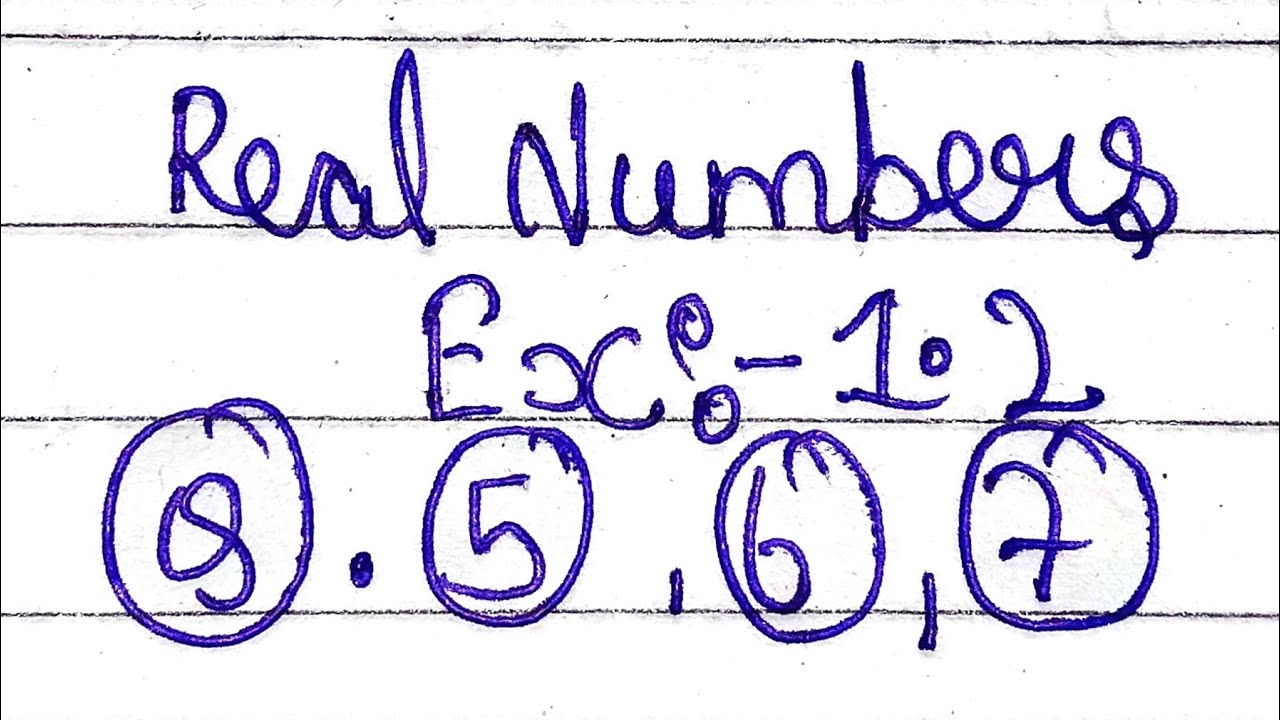 Real Numbers
Ex:- 1.2
Q. 5, 6, 7